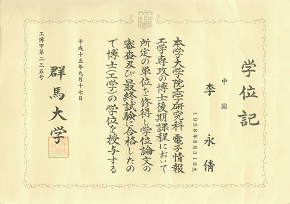 学位記
中国
李永倩
1958年8月31日生
本学大学院工学研究科電子情報
工学専攻の博士後期課程において
所定の単位を修得し学位論文の
審査及び最終試験に合格したの
で博士(工学)の学位を授与する
平成十五年九月十七日
群馬大学
工博甲第二二五号